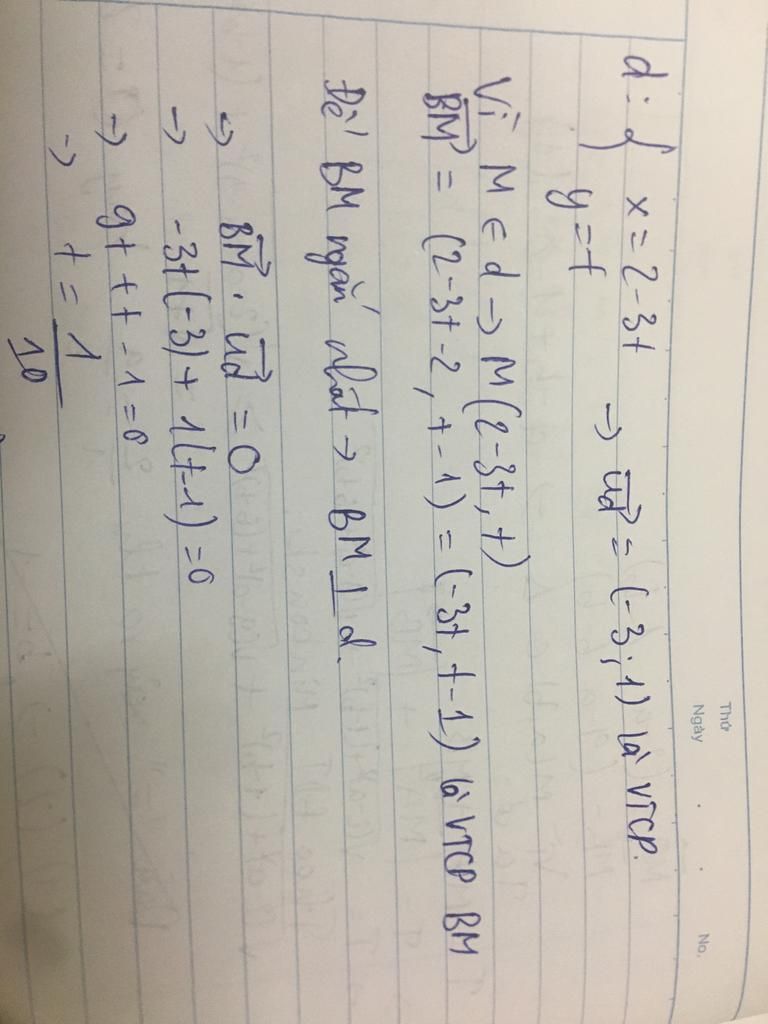 Thứ
Ngày . . No.
d: { x = 2 - 3t
y = t → u⃗d = (-3; 1) là VTCP.
Vì M ∈ d → M(2-3t, t)
B⃗M = (2-3t-2, t-1) = (-3t, t-1) là VTCP BM
Để BM ngắn nhất → BM ⊥ d.
→ B⃗M . u⃗d = 0
→ -3t(-3) + 1(t-1) = 0
→ 9t + t - 1 = 0
→ t = 1/10